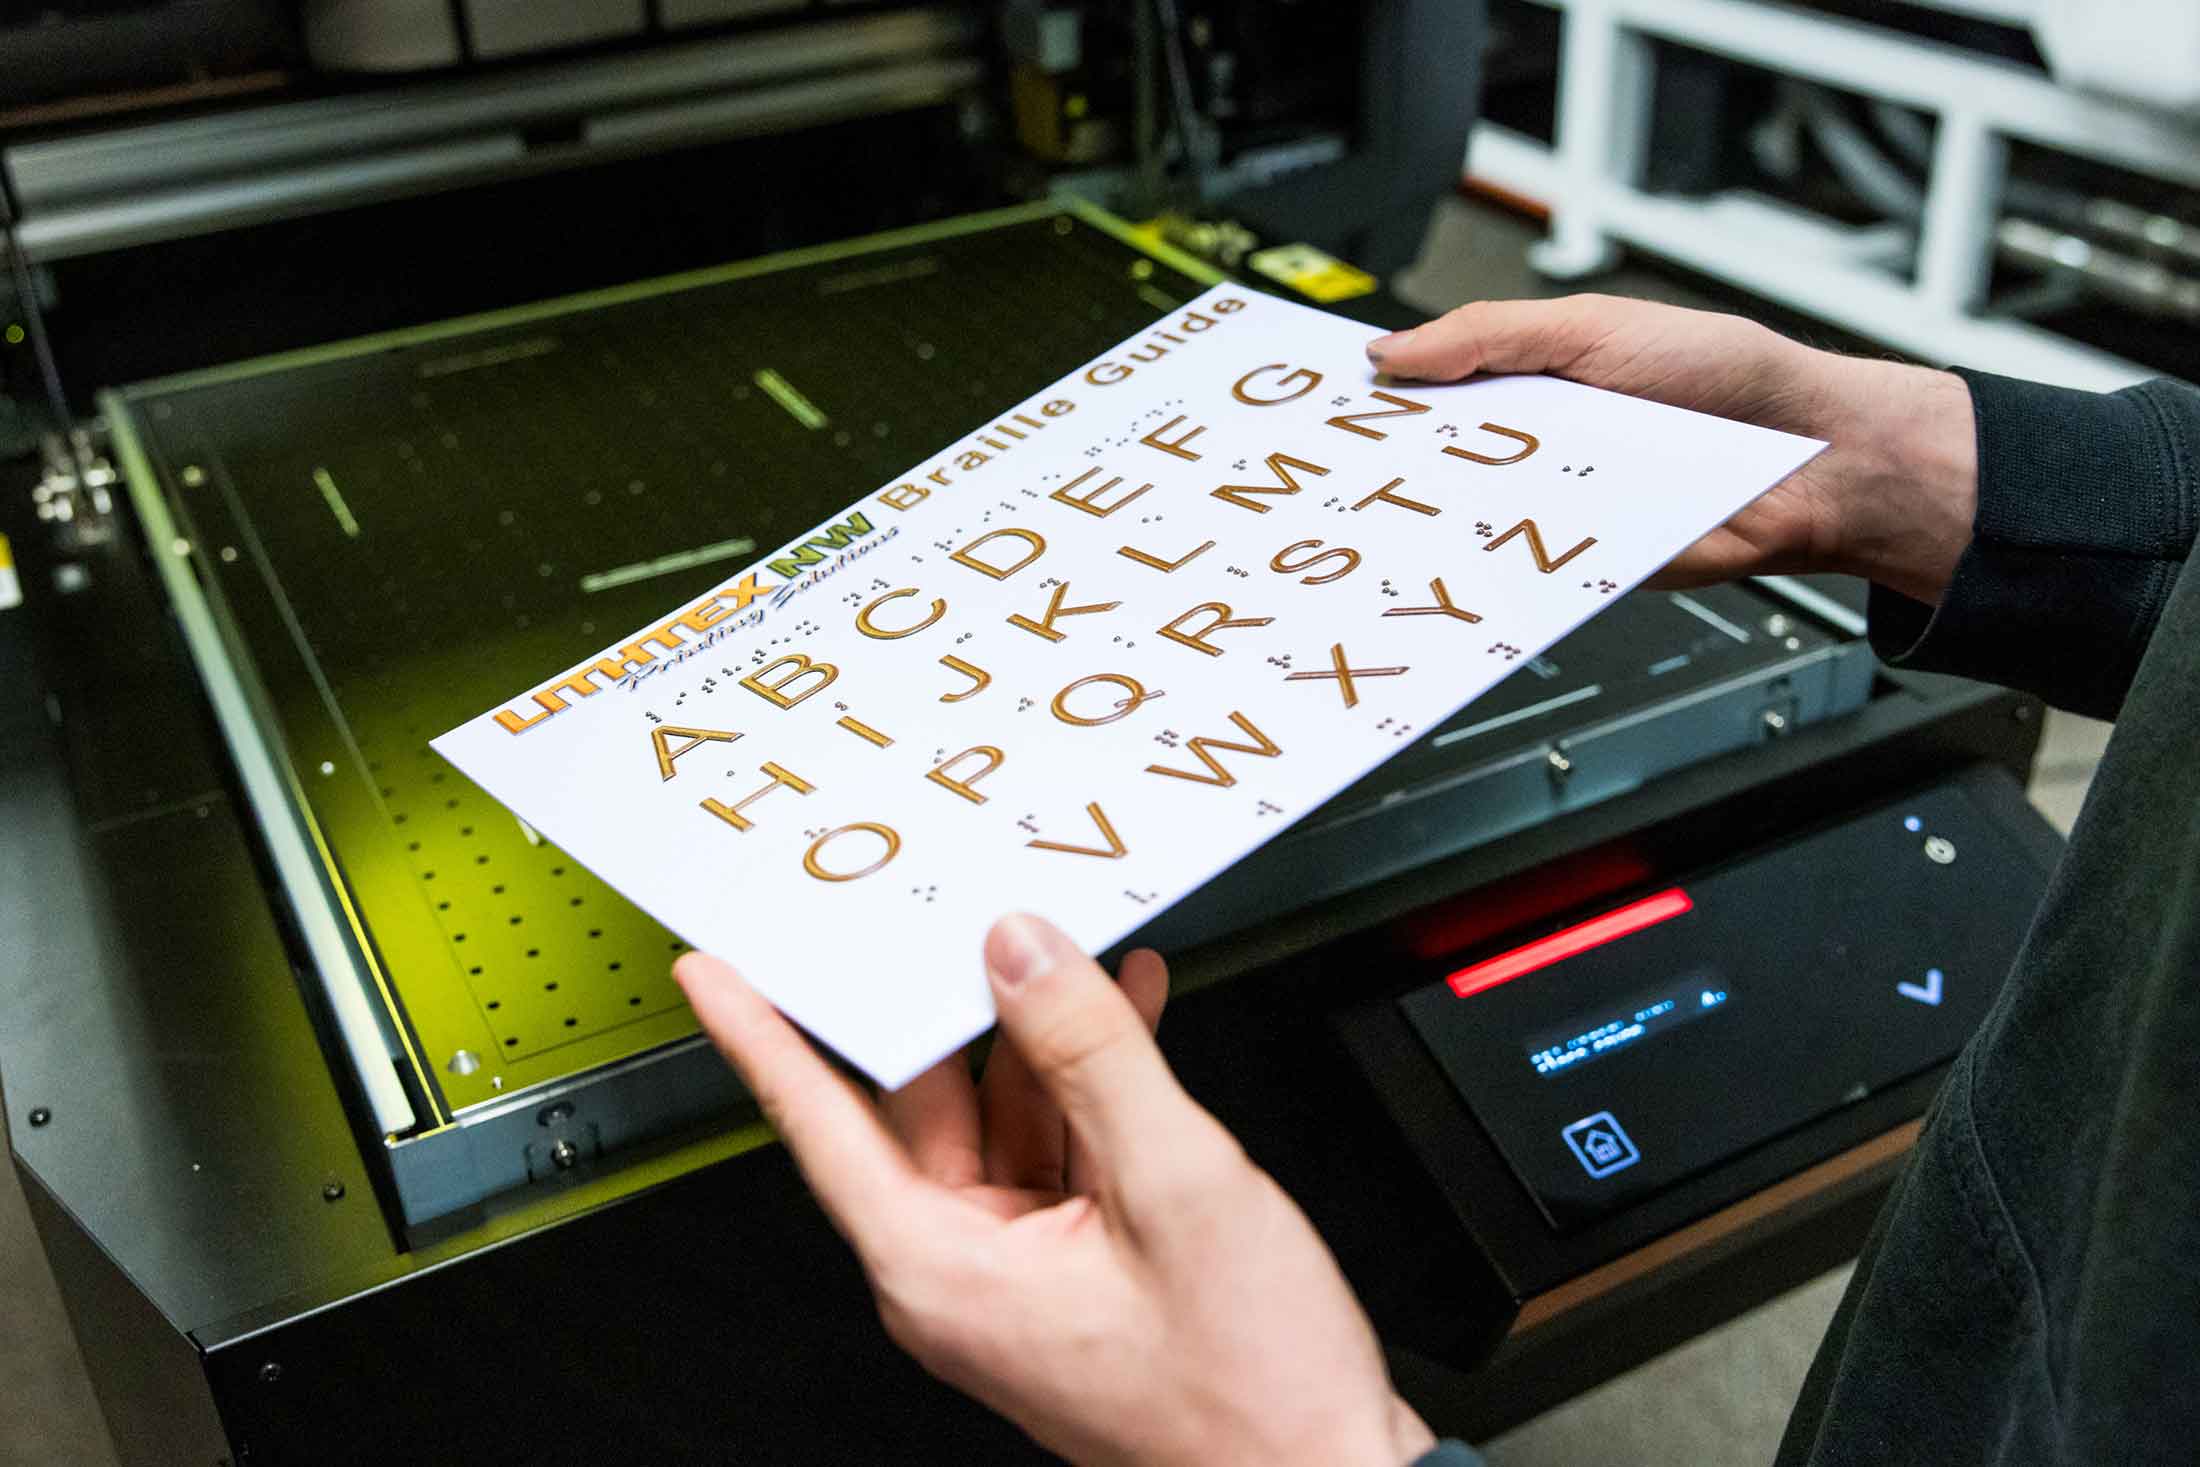 LITHTEXNW Braille Guide
Printing Solutions
A B C D E F G
H I J K L M N
O P Q R S T U
V W X Y Z